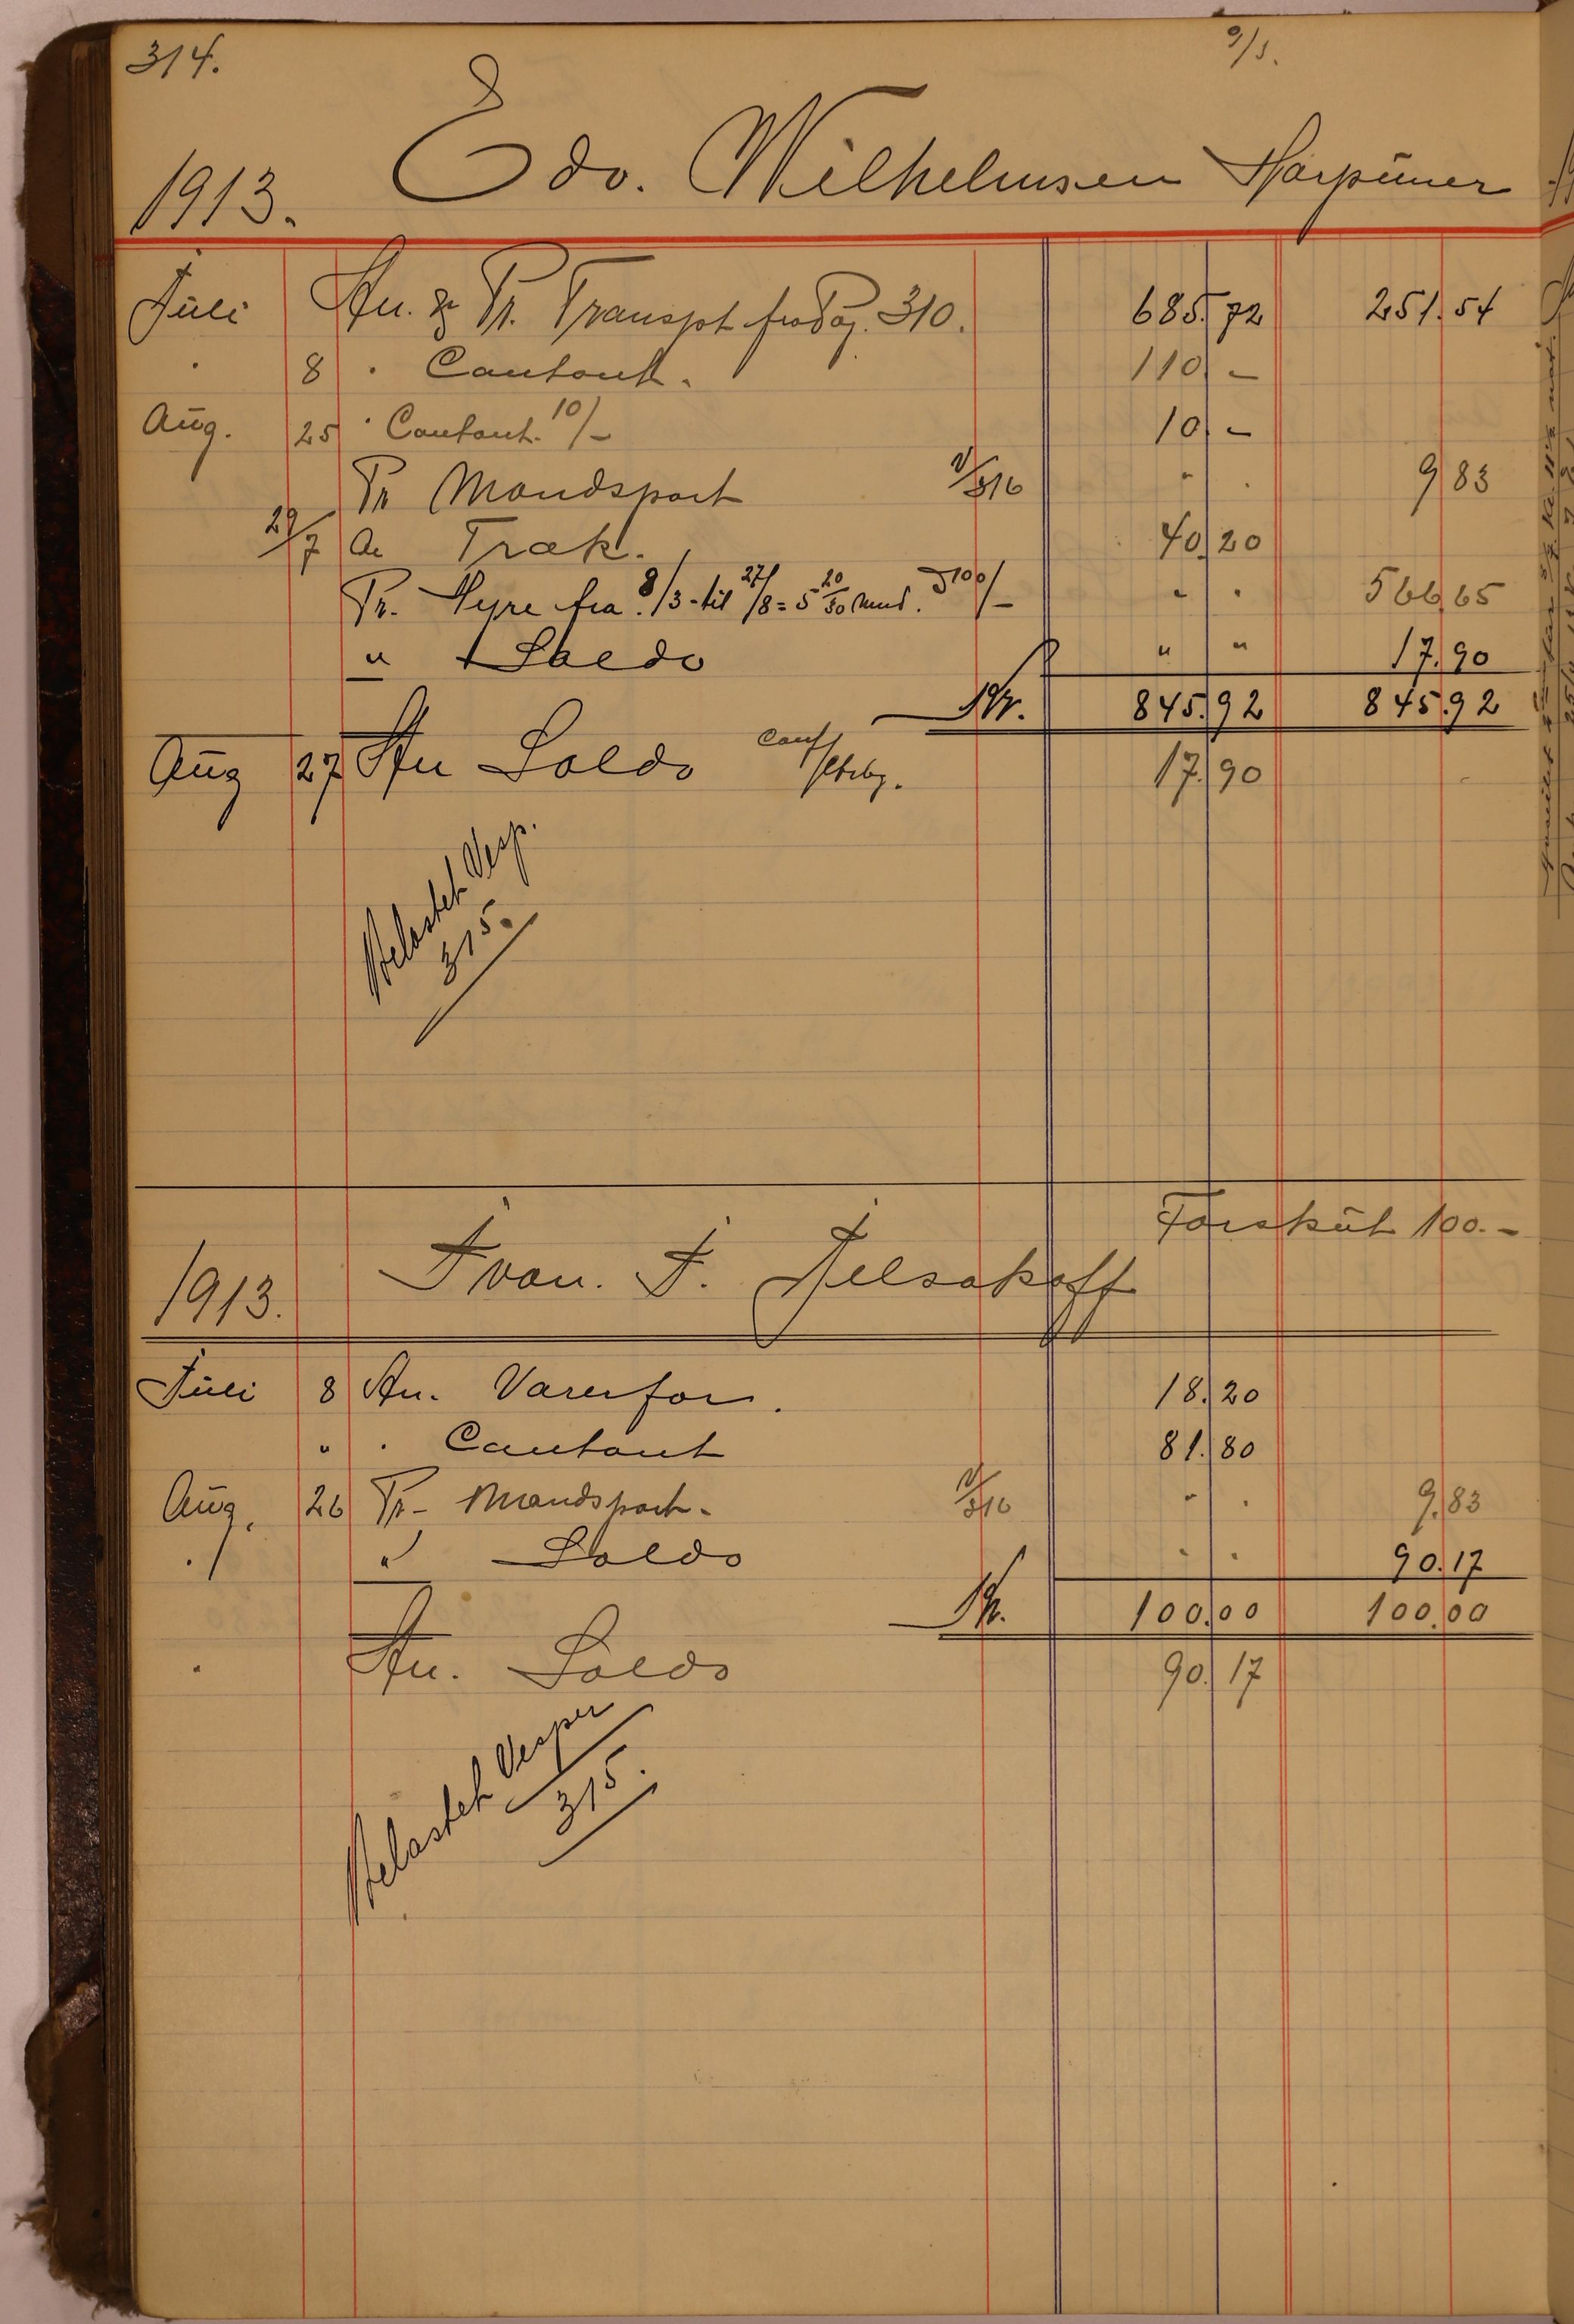 314.
9/3.
1913. Edv. Wilhelmsen Harpüner
Jüli An. & Pr. Transpt fra Pag. 310. 685.72 251.54
" 8 " Contant. 110.-
Aüg. 25 " Contant. 10/- 10.-
Pr Mandspart V/316 " " 9 83
29/7 An Træk. 40.20
Pr. Hyre fra 8/3 - til 27/8 = 5 20/30 mnd. à 100/- " " 566.65
" Saldo " " 17.90
Kr. 845.92 845.92
Aüg 27 An Saldo 17.90
Belastet Vesp.
315.
Forsküt 100.-
1913. Ivan. I. Jelsakoff
Jüli 8 An. Varerfor. 18.20
" " Contant 81.80
Aüg. 26 Pr- Mandspart. V/316 " " 9.83
" " Saldo " " 90.17
Kr. 100.00 100.00
" An. Saldo 90.17
Belastet Vesper
315.